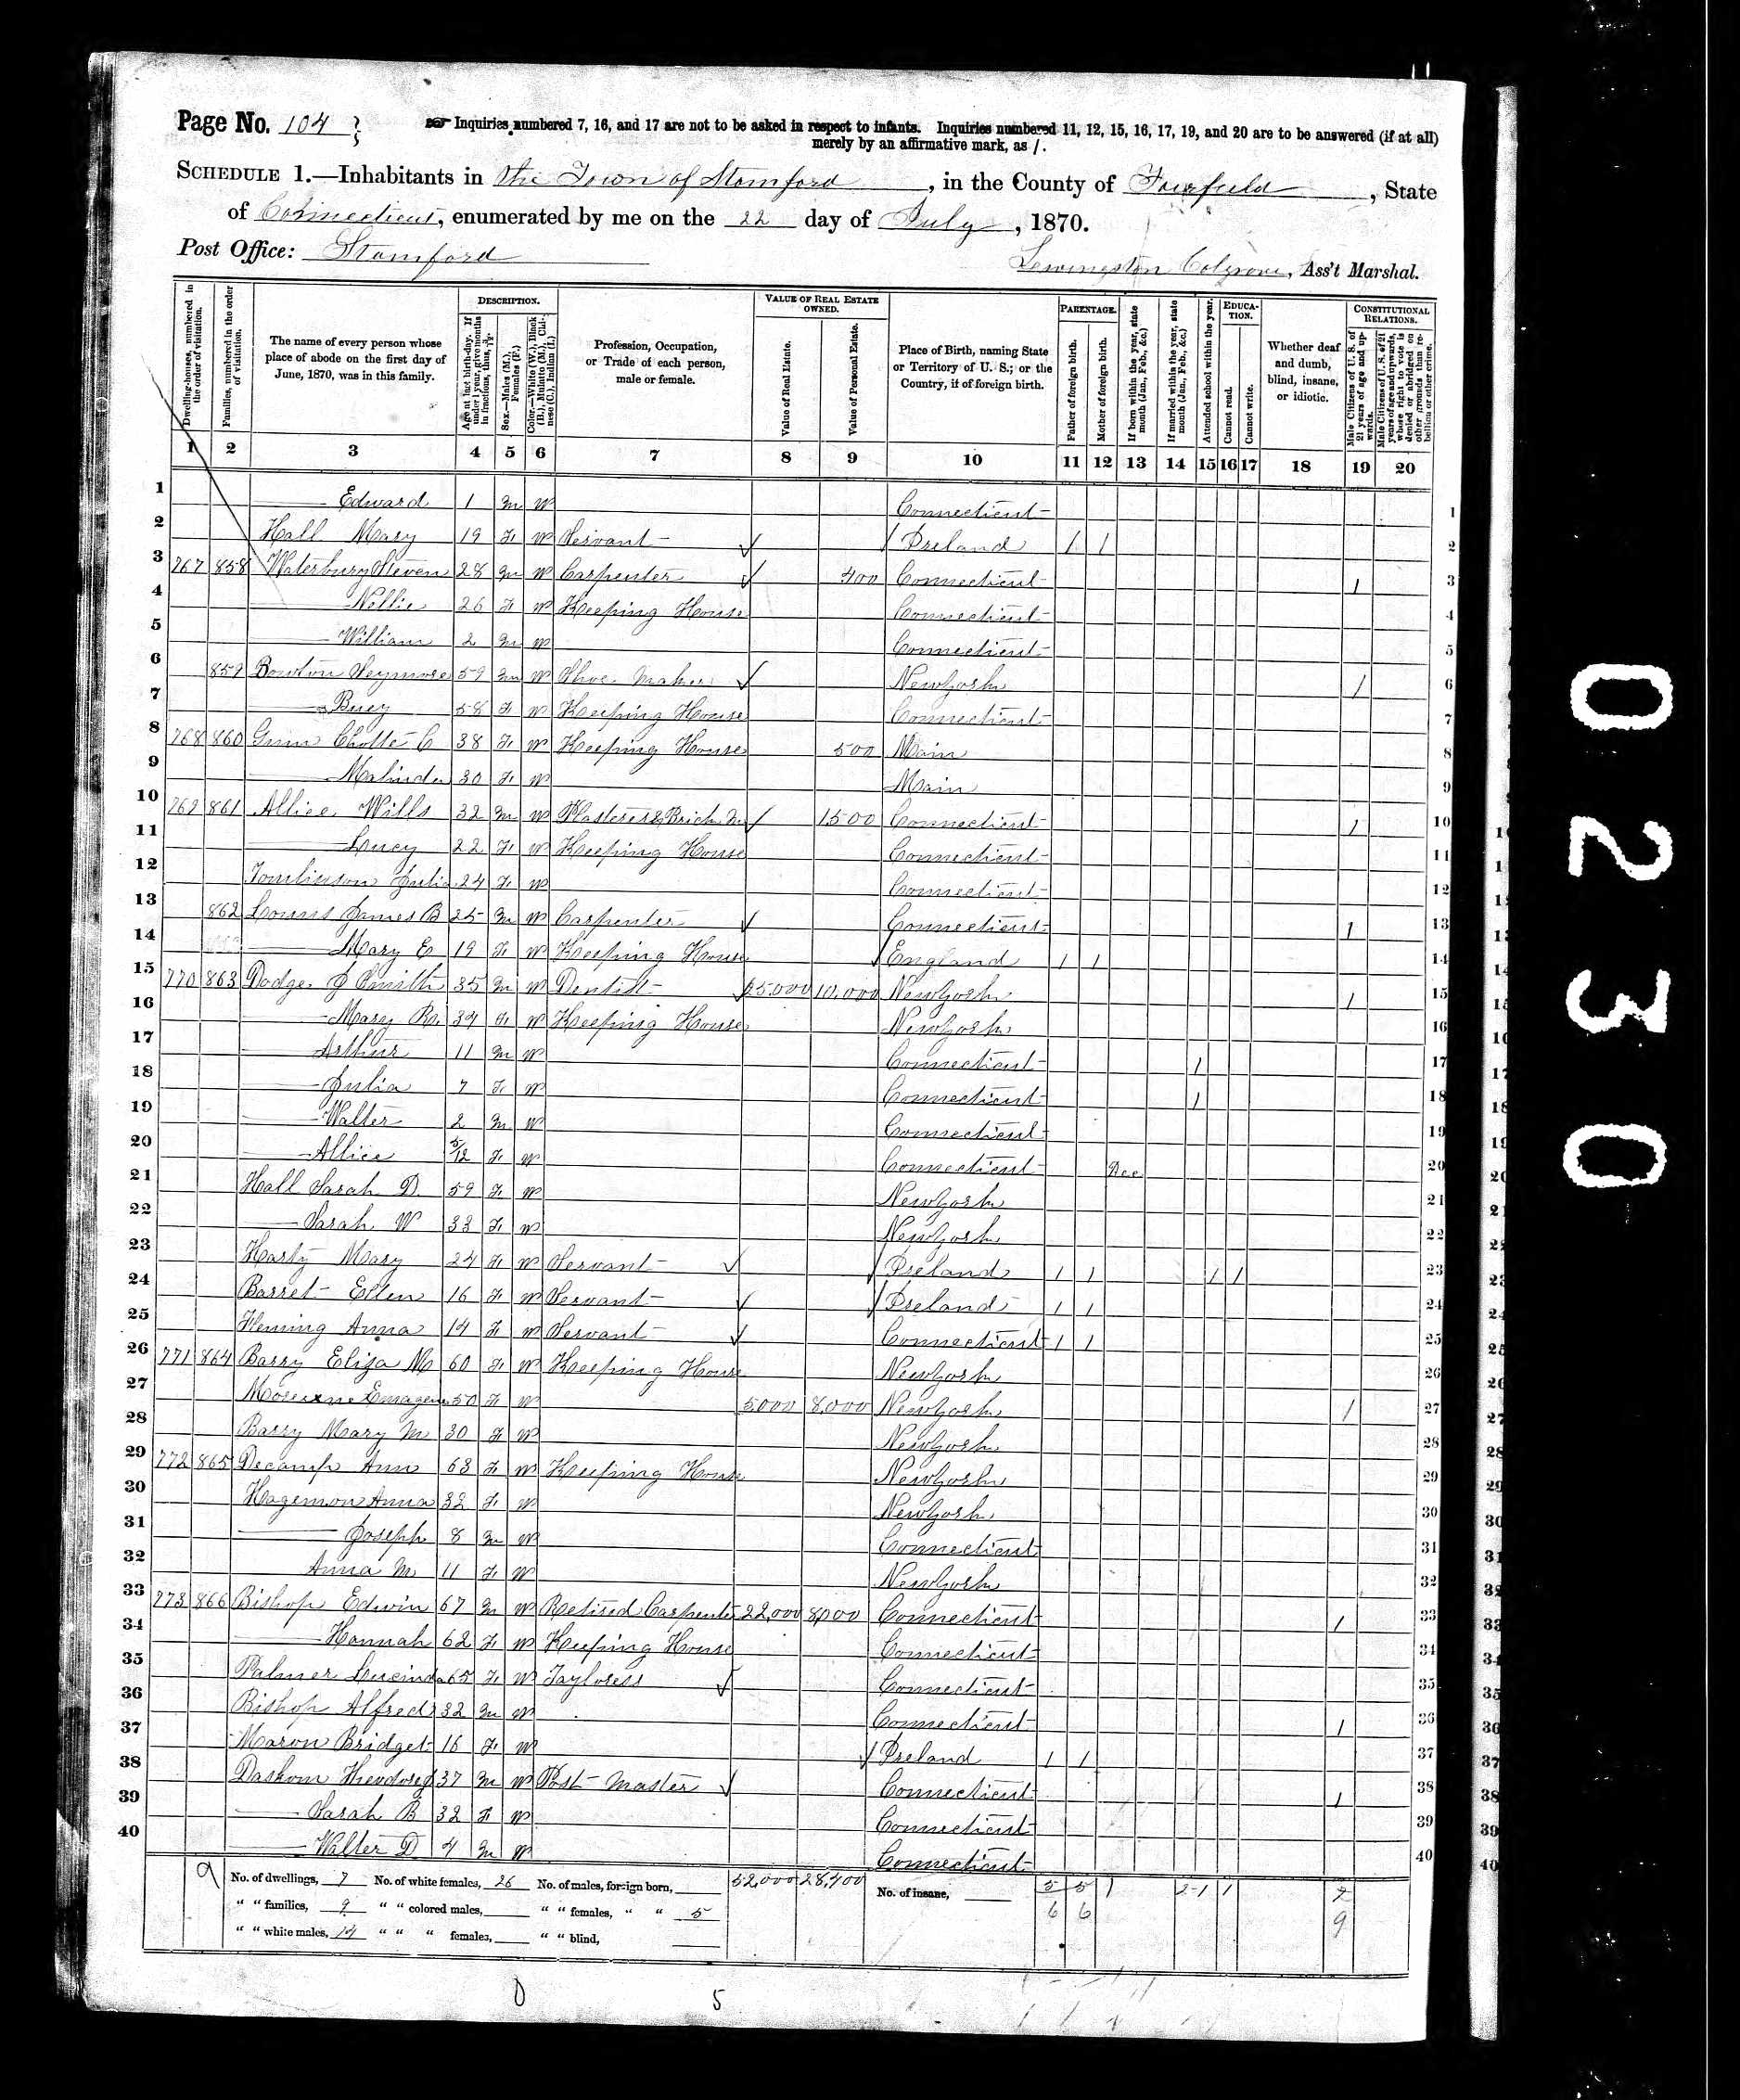 Page No. 104
Inquiries numbered 7, 16, and 17 are not to be asked in respect to infants. Inquiries numbered 11, 12, 15, 16, 17, 19, and 20 are to be answered (if at all)
merely by an affirmative mark, as /.
SCHEDULE 1.—Inhabitants in the Town of Stamford, in the County of Fairfield, State
of Connecticut, enumerated by me on the 22 day of July, 1870.
Post Office: Stamford
Ass't Marshal.
DESCRIPTION.
VALUE OF REAL ESTATE OWNED.
PARENTAGE.
EDUCATION.
CONSTITUTIONAL RELATIONS.
Dwelling-houses, numbered in the order of visitation.
Families, numbered in the order of visitation.
The name of every person whose place of abode on the first day of June, 1870, was in this family.
Age at last birth-day. If under 1 year, give months in fractions, thus,
Sex.—Males (M.), Females (F.)
Color.—White (W.), Black (B.), Mulatto (M.), Chinese (C.), Indian (I.)
Profession, Occupation, or Trade of each person, male or female.
Value of Real Estate.
Value of Personal Estate.
Place of Birth, naming State or Territory of U. S.; or the Country, if of foreign birth.
Father of foreign birth.
Mother of foreign birth.
If born within the year, state month (Jan., Feb., &c.)
If married within the year, state month (Jan., Feb., &c.)
Attended school within the year.
Cannot read.
Cannot write.
Whether deaf and dumb, blind, insane, or idiotic.
Male Citizens of U. S. of 21 years of age and upwards.
Male Citizens of U. S. of 21 years of age and upwards, whose right to vote is denied or abridged on other grounds than rebellion or other crime.
1 2 3 4 5 6 7 8 9 10 11 12 13 14 15 16 17 18 19 20
1 —— Edward 1 M W Connecticut 1
2 Hall Mary 19 F W Servant ✓ / Ireland 1 1 2
3 767 858 Waterbury Steven 28 M W Carpenter ✓ 400 Connecticut 1 3
4 —— Nellie 26 F W Keeping House Connecticut 4
5 —— William 2 M W Connecticut 5
6 859 Bowton Seymore 59 M W Shoe Maker ✓ New York 1 6
7 —— 58 F W Keeping House Connecticut 7
8 768 860 38 F W Keeping House 500 Main 8
9 —— Malinda 30 F W Main 9
10 769 861 Allice Wills 32 M W Plasterer & Brick M ✓ 1500 Connecticut 1 10
11 —— Lucy 22 F W Keeping House Connecticut 11
12 Tomlinson Julia 24 F W Connecticut 12
13 862 Louns James B 25 M W Carpenter ✓ Connecticut 1 13
14 —— Mary E 19 F W Keeping House / England 1 1 14
15 770 863 Dodge J Smith 35 M W Dentist 25,000 10,000 New York 1 15
16 —— Mary R. 34 F W Keeping House New York 16
17 —— Arthur 11 M W Connecticut 1 17
18 —— Julia 7 F W Connecticut 1 18
19 —— Walter 2 M W Connecticut 19
20 —— Allice 5/12 F W Connecticut Dec 20
21 Hall Sarah D. 59 F W New York 21
22 —— Sarah W 33 F W New York 22
23 Harty Mary 24 F W Servant ✓ / Ireland 1 1 1 1 23
24 Barret Ellen 16 F W Servant ✓ / Ireland 1 1 24
25 Fleming Anna 14 F W Servant ✓ Connecticut 1 1 25
26 771 864 Barry Eliza M 60 F W Keeping House New York 26
27 50 F W 5,000 8,000 New York 1 27
28 Barry Mary M 30 F W New York 28
29 772 865 Decamp Ann 63 F W Keeping House New York 29
30 Hagemon Anna 32 F W New York 30
31 —— Joseph 8 M W Connecticut 31
32 Anna M. 11 F W New York 32
33 773 866 Bishop Edwin 67 M W Retired Carpenter 22,000 8,000 Connecticut 1 33
34 —— Hannah 62 F W Keeping House Connecticut 34
35 Palmer Lucinda 65 F W Tayloress ✓ Connecticut 35
36 Bishop Alfred 32 M W Connecticut 1 36
37 Maron Bridget 16 F W / Ireland 1 1 37
38 Daskom Theodore J 37 M W Post Master ✓ Connecticut 1 38
39 —— Sarah B 32 F W Connecticut 39
40 —— Walter D 4 M W Connecticut 40
9 No. of dwellings, 7 No. of white females, 26 No. of males, foreign born, 52,000 28,400 No. of insane, 5 5 1 2 1 1 7
" " families, 9 " " colored males, " " females, " " 5 6 6 9
" " white males, 14 " " " females, " " blind,
0 5
0230